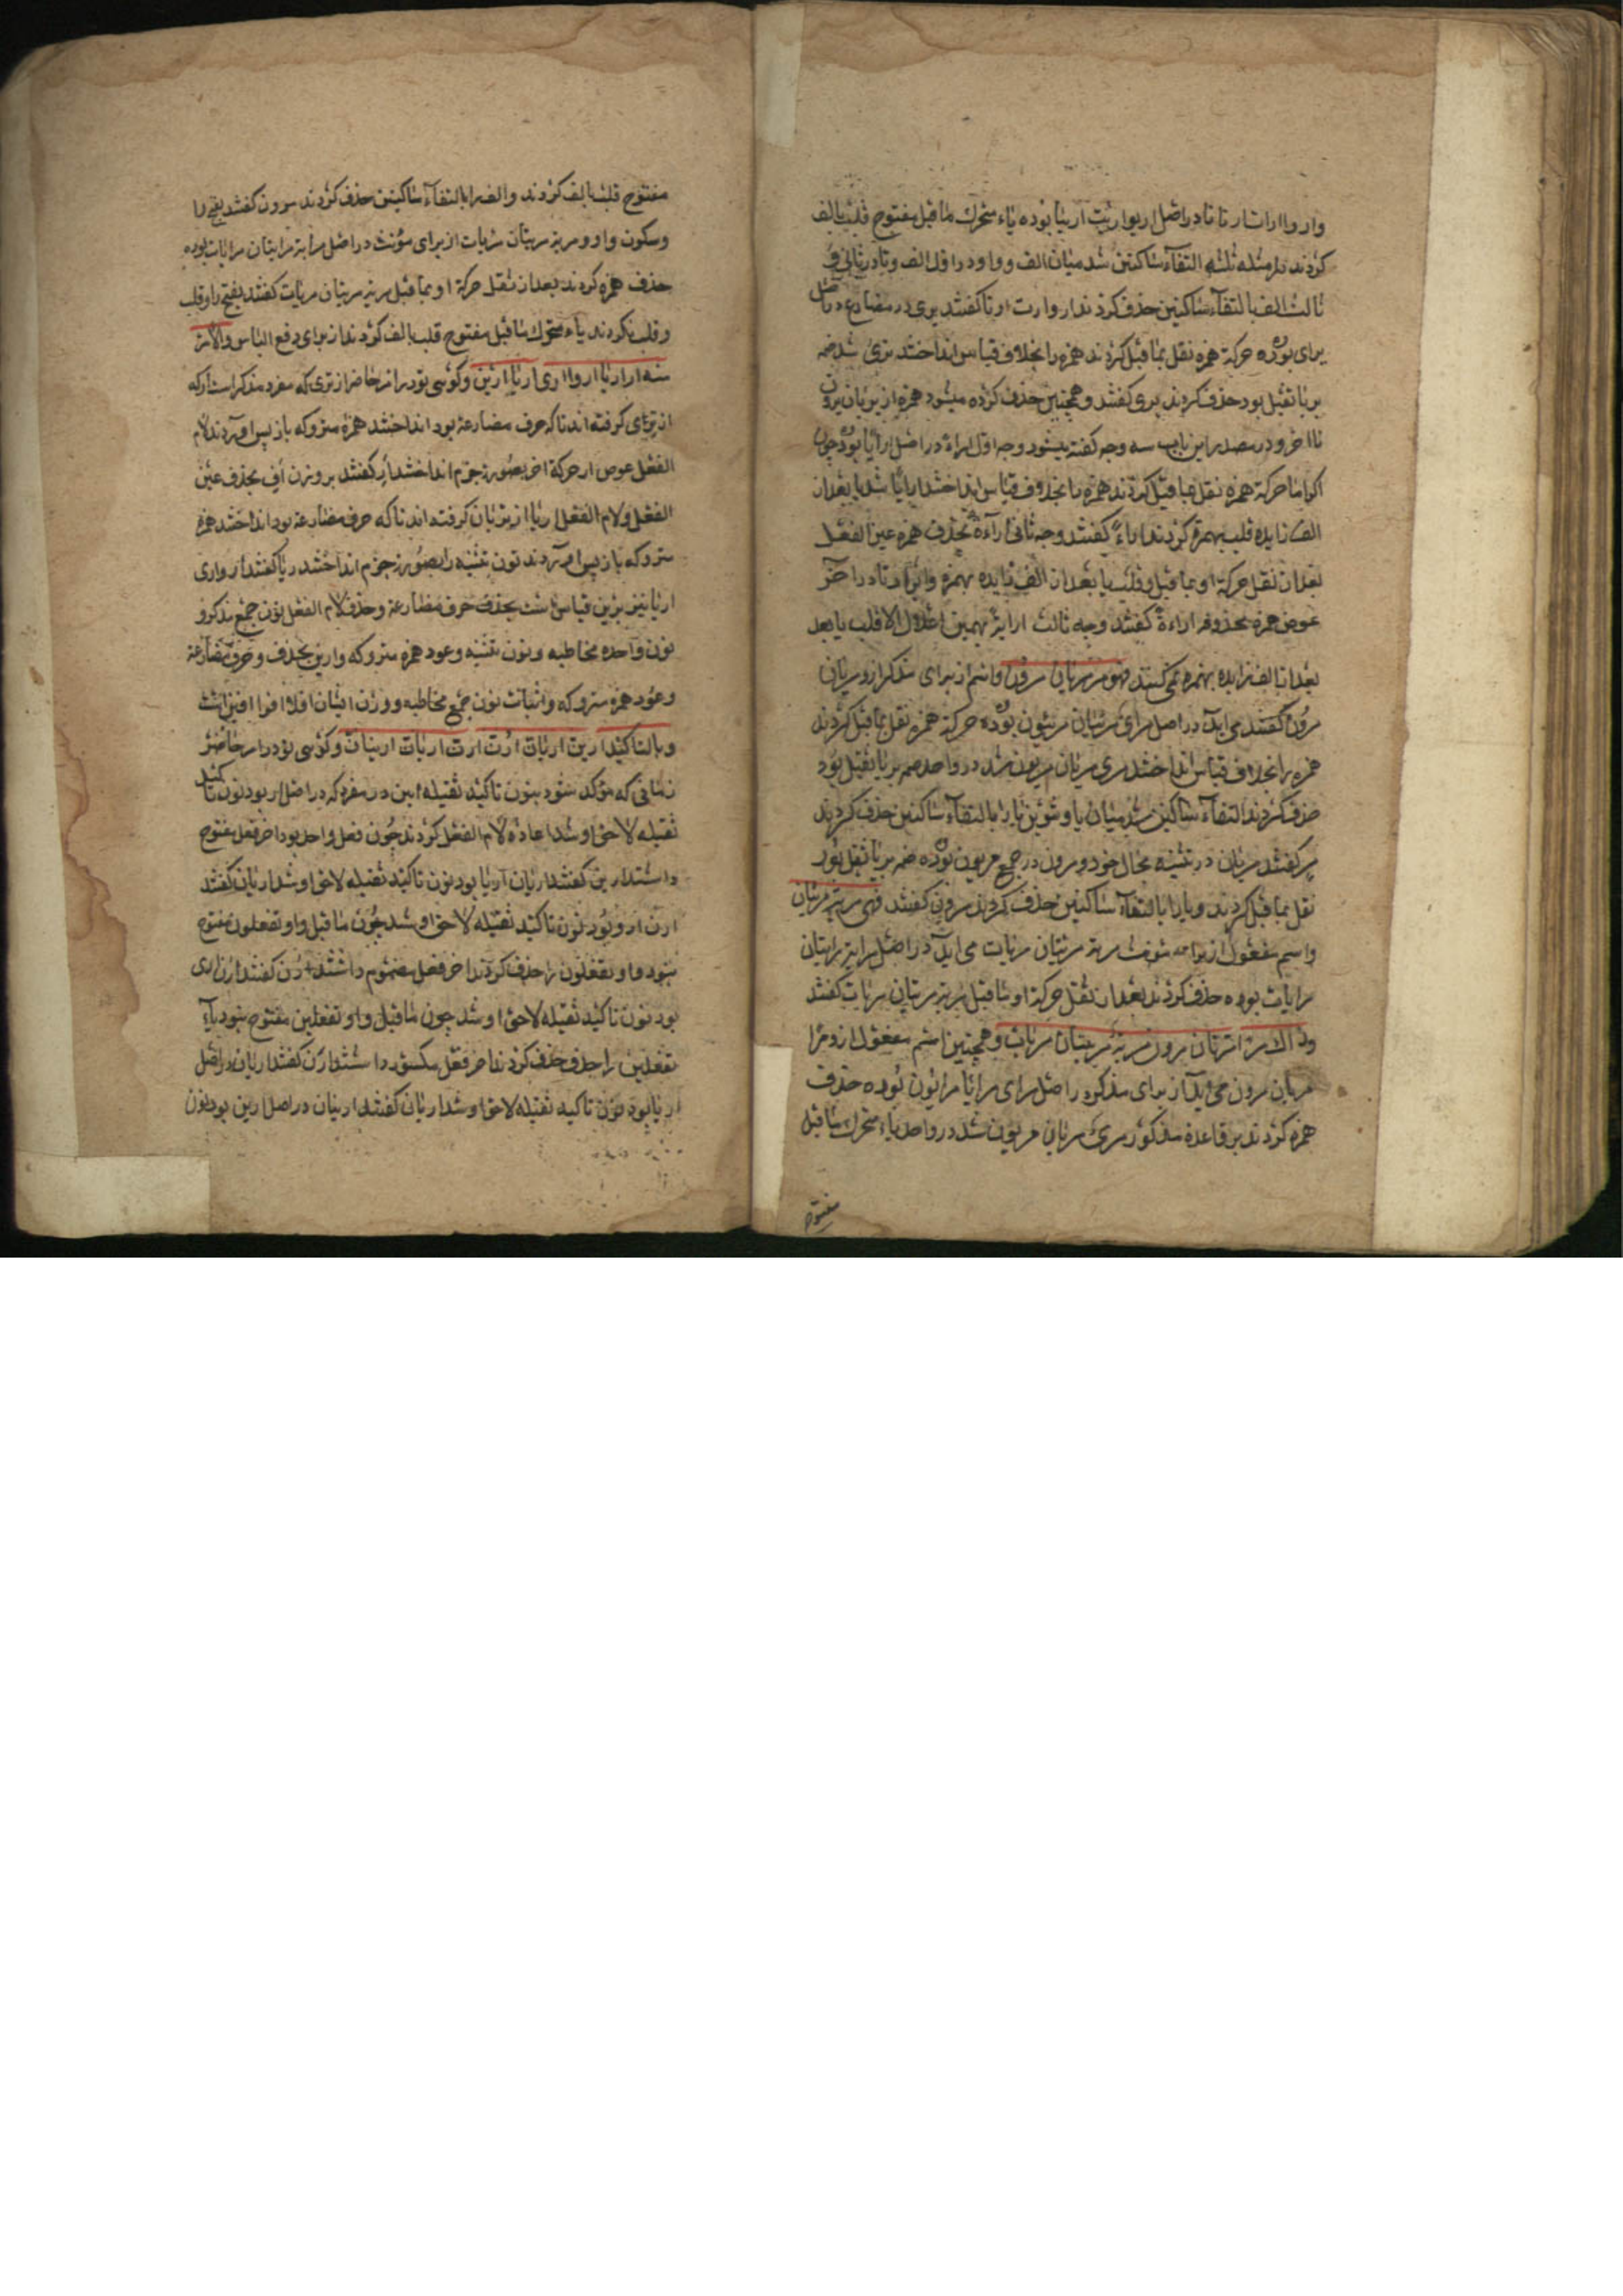 واروا ارات ارتا تا در اصل اریوا ریت اریتا بوده یاء متحرك ماقبل مفتوح قلب بالف
کردند در مثله ثلثه التقاء ساکنین شد میان الف و واو در اول الف و تا در ثانی و
ثالث الف بالتقاء ساکنین حذف کردند اروا رت ارتا کفتند یری در مضارع در اصل
یرای بوده حرکة همزه نقل بماقبل کردند همزه را بخلاف قیاس انداختند یری شد ضمه
بر یا ثقیل بود حذف کردند یری کفتند و همچنین حذف کرده میشود همزه از یریان یرون
تا اخر و در مصدر این باب سه وجه کفته میشود وجه اول اراء در اصل ارایا بوده چون
اکراما حرکة همزه نقل بماقبل کردند همزه را بخلاف قیاس انداختند ارایا شد یا بعد از
الف زایده قلب بهمزه کردند اراء کفتند وجه ثانی اراءة بحذف همزه عین الفعل
بعد از نقل حرکة او بماقبل و قلب یا بعد از الف زایده بهمزه و ایراد تا در اخر
عوض همزه محذوفه اراءة کفتند وجه ثالث ارایة بهمین اعلال الا قلب یا بعد
بعد از الف زایده بهمزه نمی کنند فهو مر مریان مرون و اسم از برای مذکر ازو مریان
مرون کفتند می اید در اصل مرای مرئیان مرئیون بوده حرکة همزه نقل بماقبل کردند
همزه را بخلاف قیاس انداختند مری مریان مریون شد در واحد ضمه بر یا ثقیل بود
حذف کردند التقاء ساکنین شد میان یا و تنوین یا را بالتقاء ساکنین حذف کردند
مر کفتند مریان در تثنیه بحال خود و مرون در جمع مریون بوده ضمه بر یا ثقیل بود
نقل بماقبل کردند و یا را بالتقاء ساکنین حذف کردند مرون کفتند فهی مریة مریتان
و اسم مفعول از برای مونث مریة مریتان مریات می اید در اصل مرایة مرایتان
مرایات بوده حذف کردند بعد از نقل حرکة او بماقبل مریة مریتان مریات کفتند
وذاك مرا مریان مرون مریة مریتان مریات و همچنین اسم مفعول ازو مرا
مریان مرون می اید از برای مذکر در اصل مرای مرایا مرایون بوده حذف
همزه کردند بر قاعدة مذکور مری مریان مریون شد در واحد یاء متحرك ماقبل
مفتوح
مفتوح قلب بالف کردند و الف را بالتقاء ساکنین حذف کردند مرون کفتند بفتح را
و سکون واو و مریة مریتان مریات از برای مؤنث در اصل مرایة مرایتان مرایات بوده
حذف همزه کردند بعد از نقل حرکة او بماقبل مریة مریتان مریات کفتند بفتح را و قلب
و قلب نکردند یاء متحرك ماقبل مفتوح قلب بالف کردند از برای دفع التباس والامر
منه ار اریا اروا اری اریا ارین و کوئی تو در امر حاضر از تری که مفرد مذکر است ار که
از ترای کرفته اند تا که حرف مضارعة بود انداختند همزة متروکه باز پس اوردند لام
الفعل عوض از حرکة اخر بصورة جزم انداختند ار کفتند بر وزن اف بحذف عین
الفعل و لام الفعل اریا از تریان کرفته اند تا که حرف مضارعة بود انداختند همزه
متروکه باز پس اوردند نون تثنیه را بصورة جزم انداختند اریا کفتند اروا اری
اریا نیز برین قیاس است بحذف حرف مضارعة و حذف لام الفعل نون جمع مذکر و
نون واحده مخاطبه و نون تثنیه و عود همزه متروکه وارین بحذف حرف مضارعة
و عود همزه متروکه و اثبات نون جمع مخاطبه و وزن افیان افلا افوا افین است
وبالتاکید ارین اریان ارن ارن اریان ارینان و کوئی تو در امر حاضر
زمانی که مؤکد شود بنون تاکید ثقیله ارین در مفرد که در اصل ار بود نون تاکید
ثقیله لاحق او شد اعاده لام الفعل کردند چون فعل واحد بود اخر فعل مفتوح
داشتند ارین کفتند اریان اریا بود نون تاکید ثقیله لاحق او شد اریان کفتند
ارن اروا بود نون تاکید ثقیله لاحق او شد چون ماقبل واو تفعلون مفتوح
نبود واو تفعلون را حذف کردند اخر فعل مضموم داشتند ارن کفتند ارن اری
بود نون تاکید ثقیله لاحق او شد چون ماقبل واو تفعلین مفتوح نبود یاء
تفعلین را حذف کردند اخر فعل مکسور داشتند ارن کفتند اریان در اصل
اریا بود نون تاکید ثقیله لاحق او شد اریان کفتند ارینان در اصل ارین بود نون